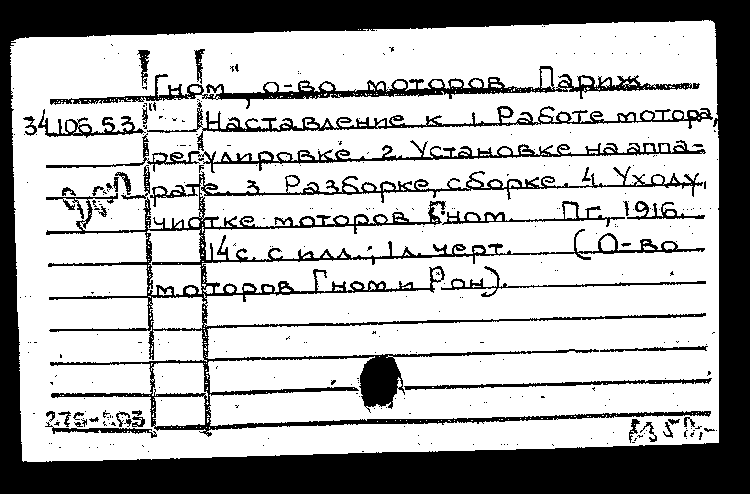 Гном", о-во моторов Париж.
34.106.53. "... Наставление к 1. Работе мотора,
регулировке. 2. Установке на аппа=
рате. 3. Разборке, сборке. 4. Уходу,
чистке моторов Гном. Пг., 1916.
14 с. с илл.; 1 л. черт. (О-во
моторов Гном и Рон).